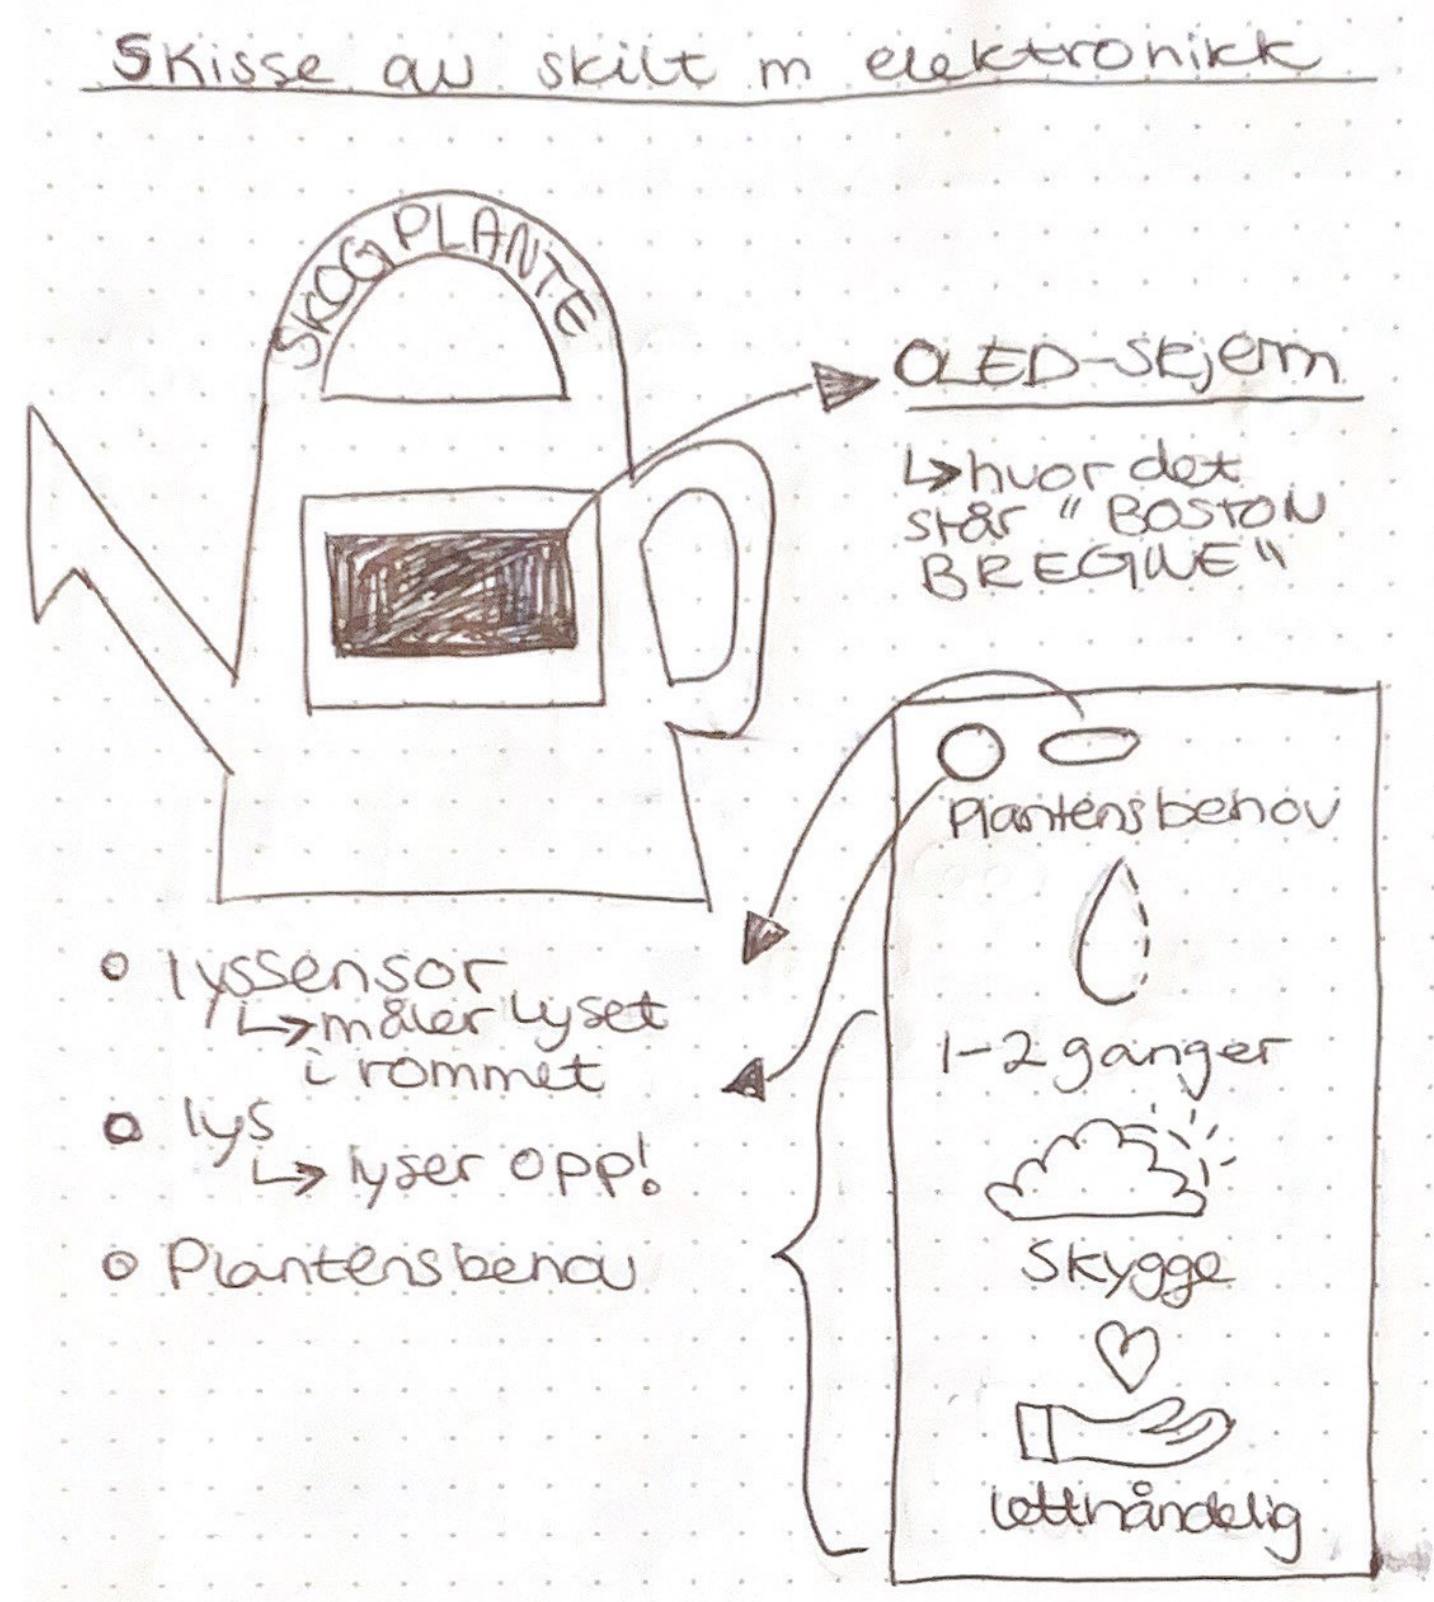 Skisse av skilt m elektronikk
SKOGPLANTE
OLED-skjerm
↳ hvor det
står "BOSTON
BREGNE"
Plantens behov
1-2 ganger
Skygge
letthåndelig
○ lyssensor
↳ måler lyset
i rommet
○ lys
↳ lyser opp!
○ Plantens behov